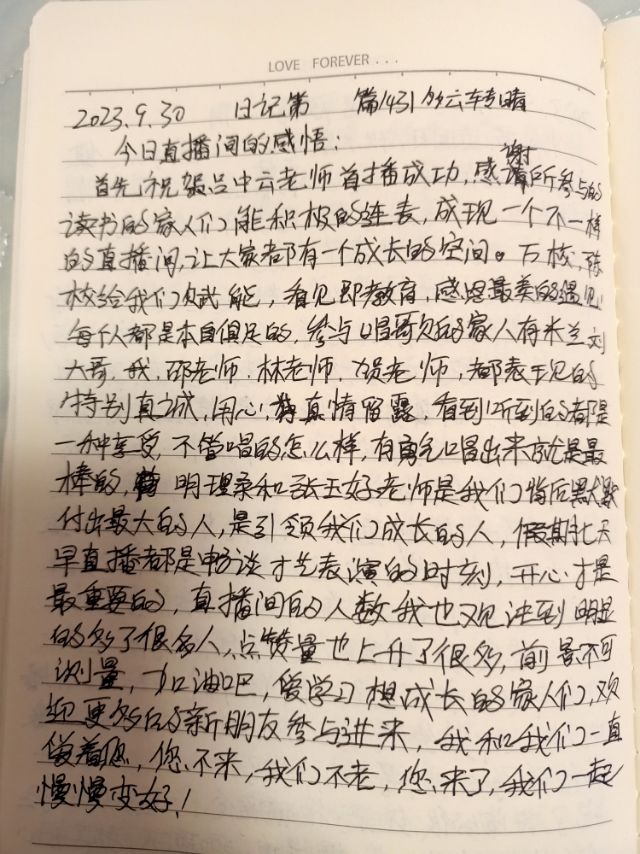 LOVE FOREVER...
2023.9.30 日记第 篇1431多云转晴
今日直播间的感悟:
首先祝贺吕中云老师首播成功,感谢所参与的
读书的家人们能积极的连表,成现一个不一样
的直播间,让大家都有一个成长的空间。万校,张
校给我们赋能,看见即教育,感恩最美的遇见
每个人都是本自俱足的,参与唱歌的家人有米兰刘
大哥,我,邵老师.林老师.贺老师,都表现的
特别真诚,用心,真情留露,看到听到的都是
一种享受,不管唱的怎么样,有勇气唱出来就是最
棒的,明理柔和张玉好老师是我们背后默默
付出最大的人,是引领我们成长的人,假期七天
早直播都是畅谈才艺表演的时刻,开心才是
最重要的,直播间的人数我也观注到明显
的多了很多人,点赞量也上升了很多,前景不可
测量,加油吧,爱学习想成长的家人们,欢
迎更多的新朋友参与进来,我和我们一直
做着呢,您不来,我们不老,您来了,我们一起
慢慢变好!